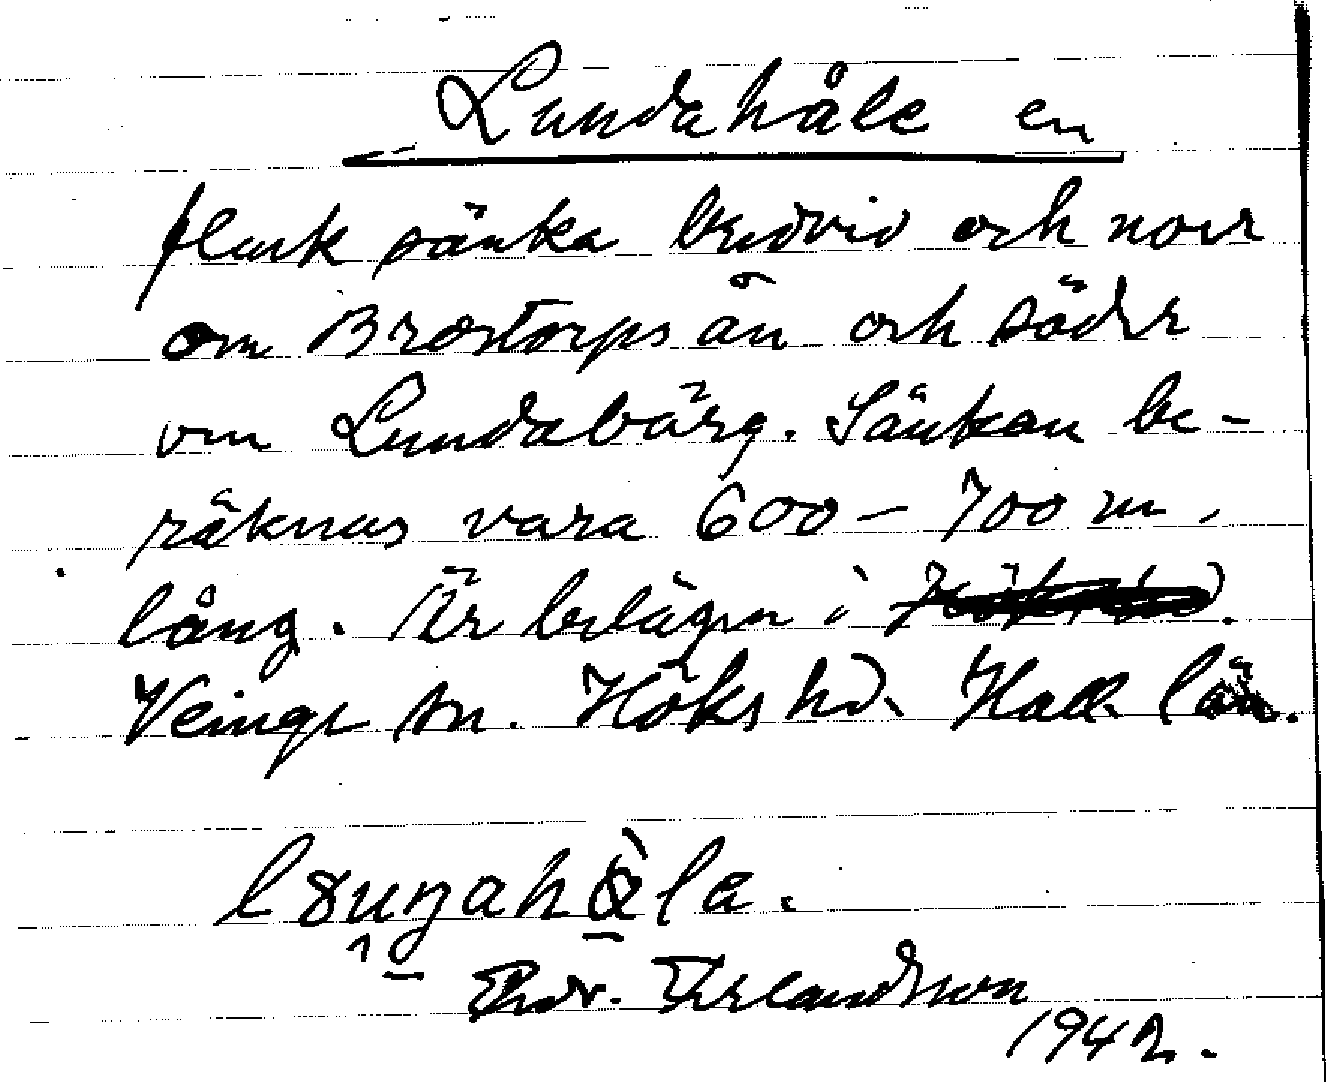 Lundahåle en
flack sänka bredvid och norr
om Brostorps ån och söder
om Lundabärg. Sänkan be-
räknas vara 600 - 700 m.
lång. Är belägen i
Veinge sn. Höks hd. Hall. län.
Erlandsson
1942.